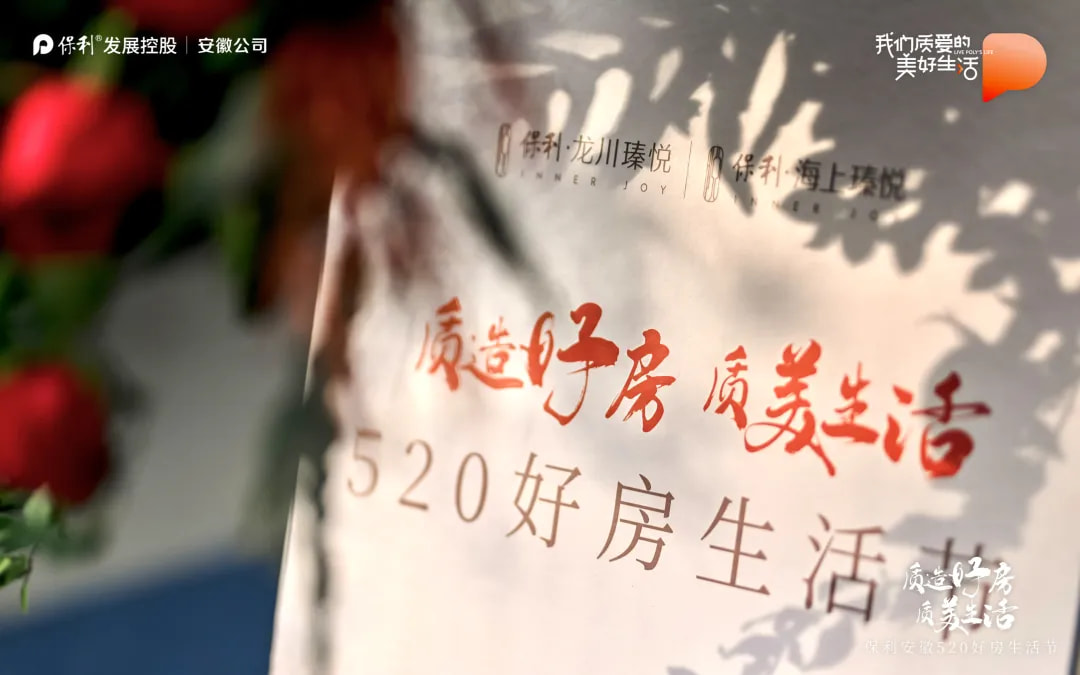 保利®发展控股 | 安徽公司
我们质爱的
LIVE POLY'S LIFE
美好生活
保利·龙川瑧悦 | 保利·海上瑧悦
INNER JOY INNER JOY
质造好房 质美生活
520好房生活节
质造好房
质美生活
保利安徽520好房生活节